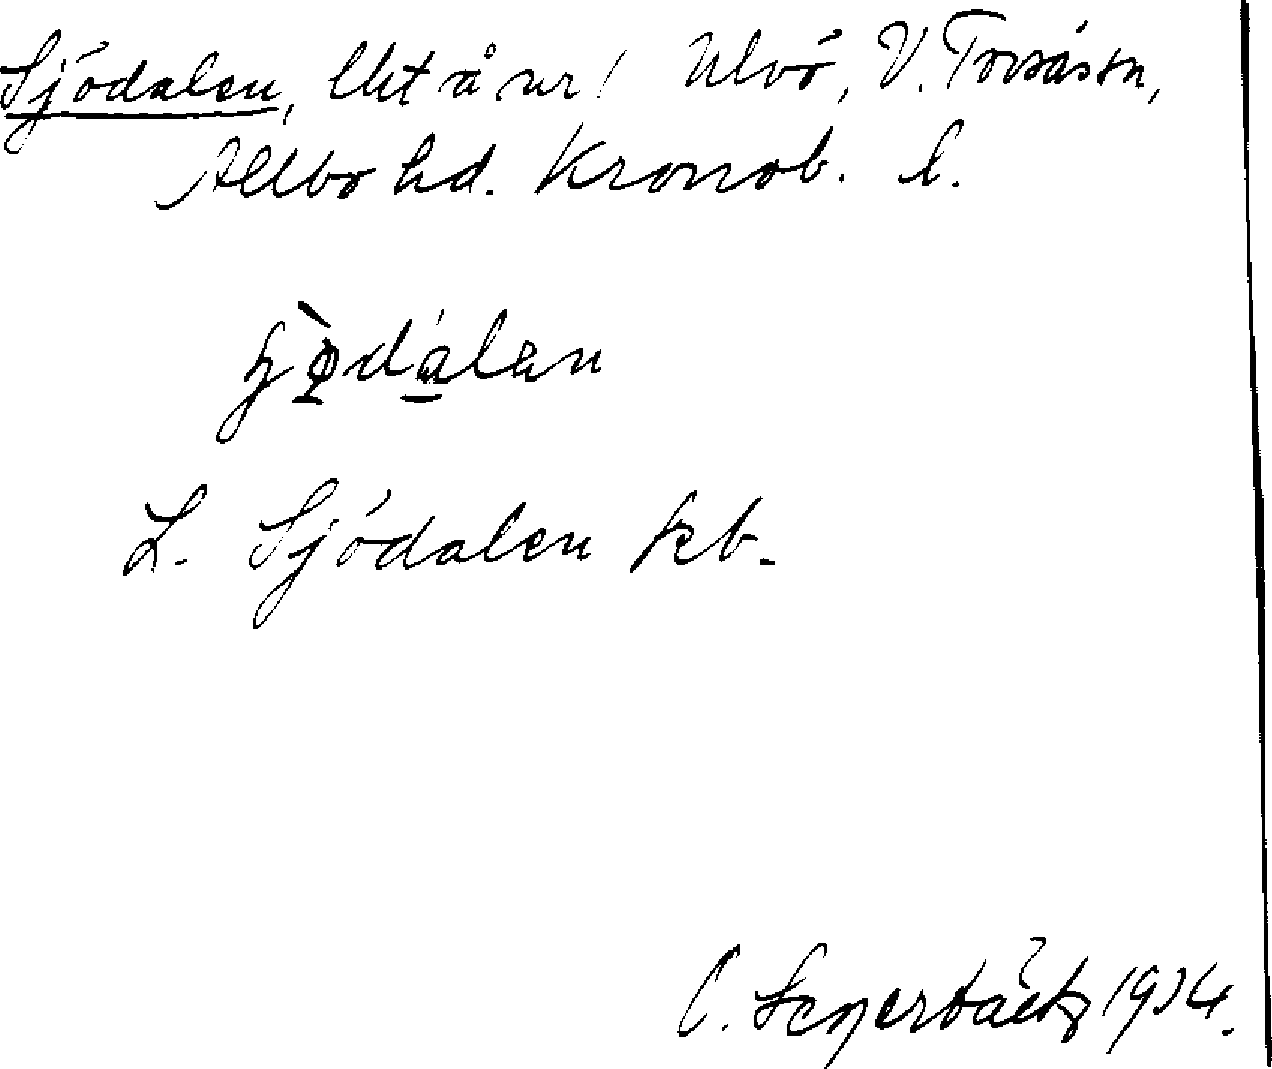 Sjödalen, Utt å ur! Ulvö, V. Torsås sn,
Allbo hd. Kronob. l.
ɧø̀dálen
L. Sjödalen kb.
C. Segerbäck 1934.